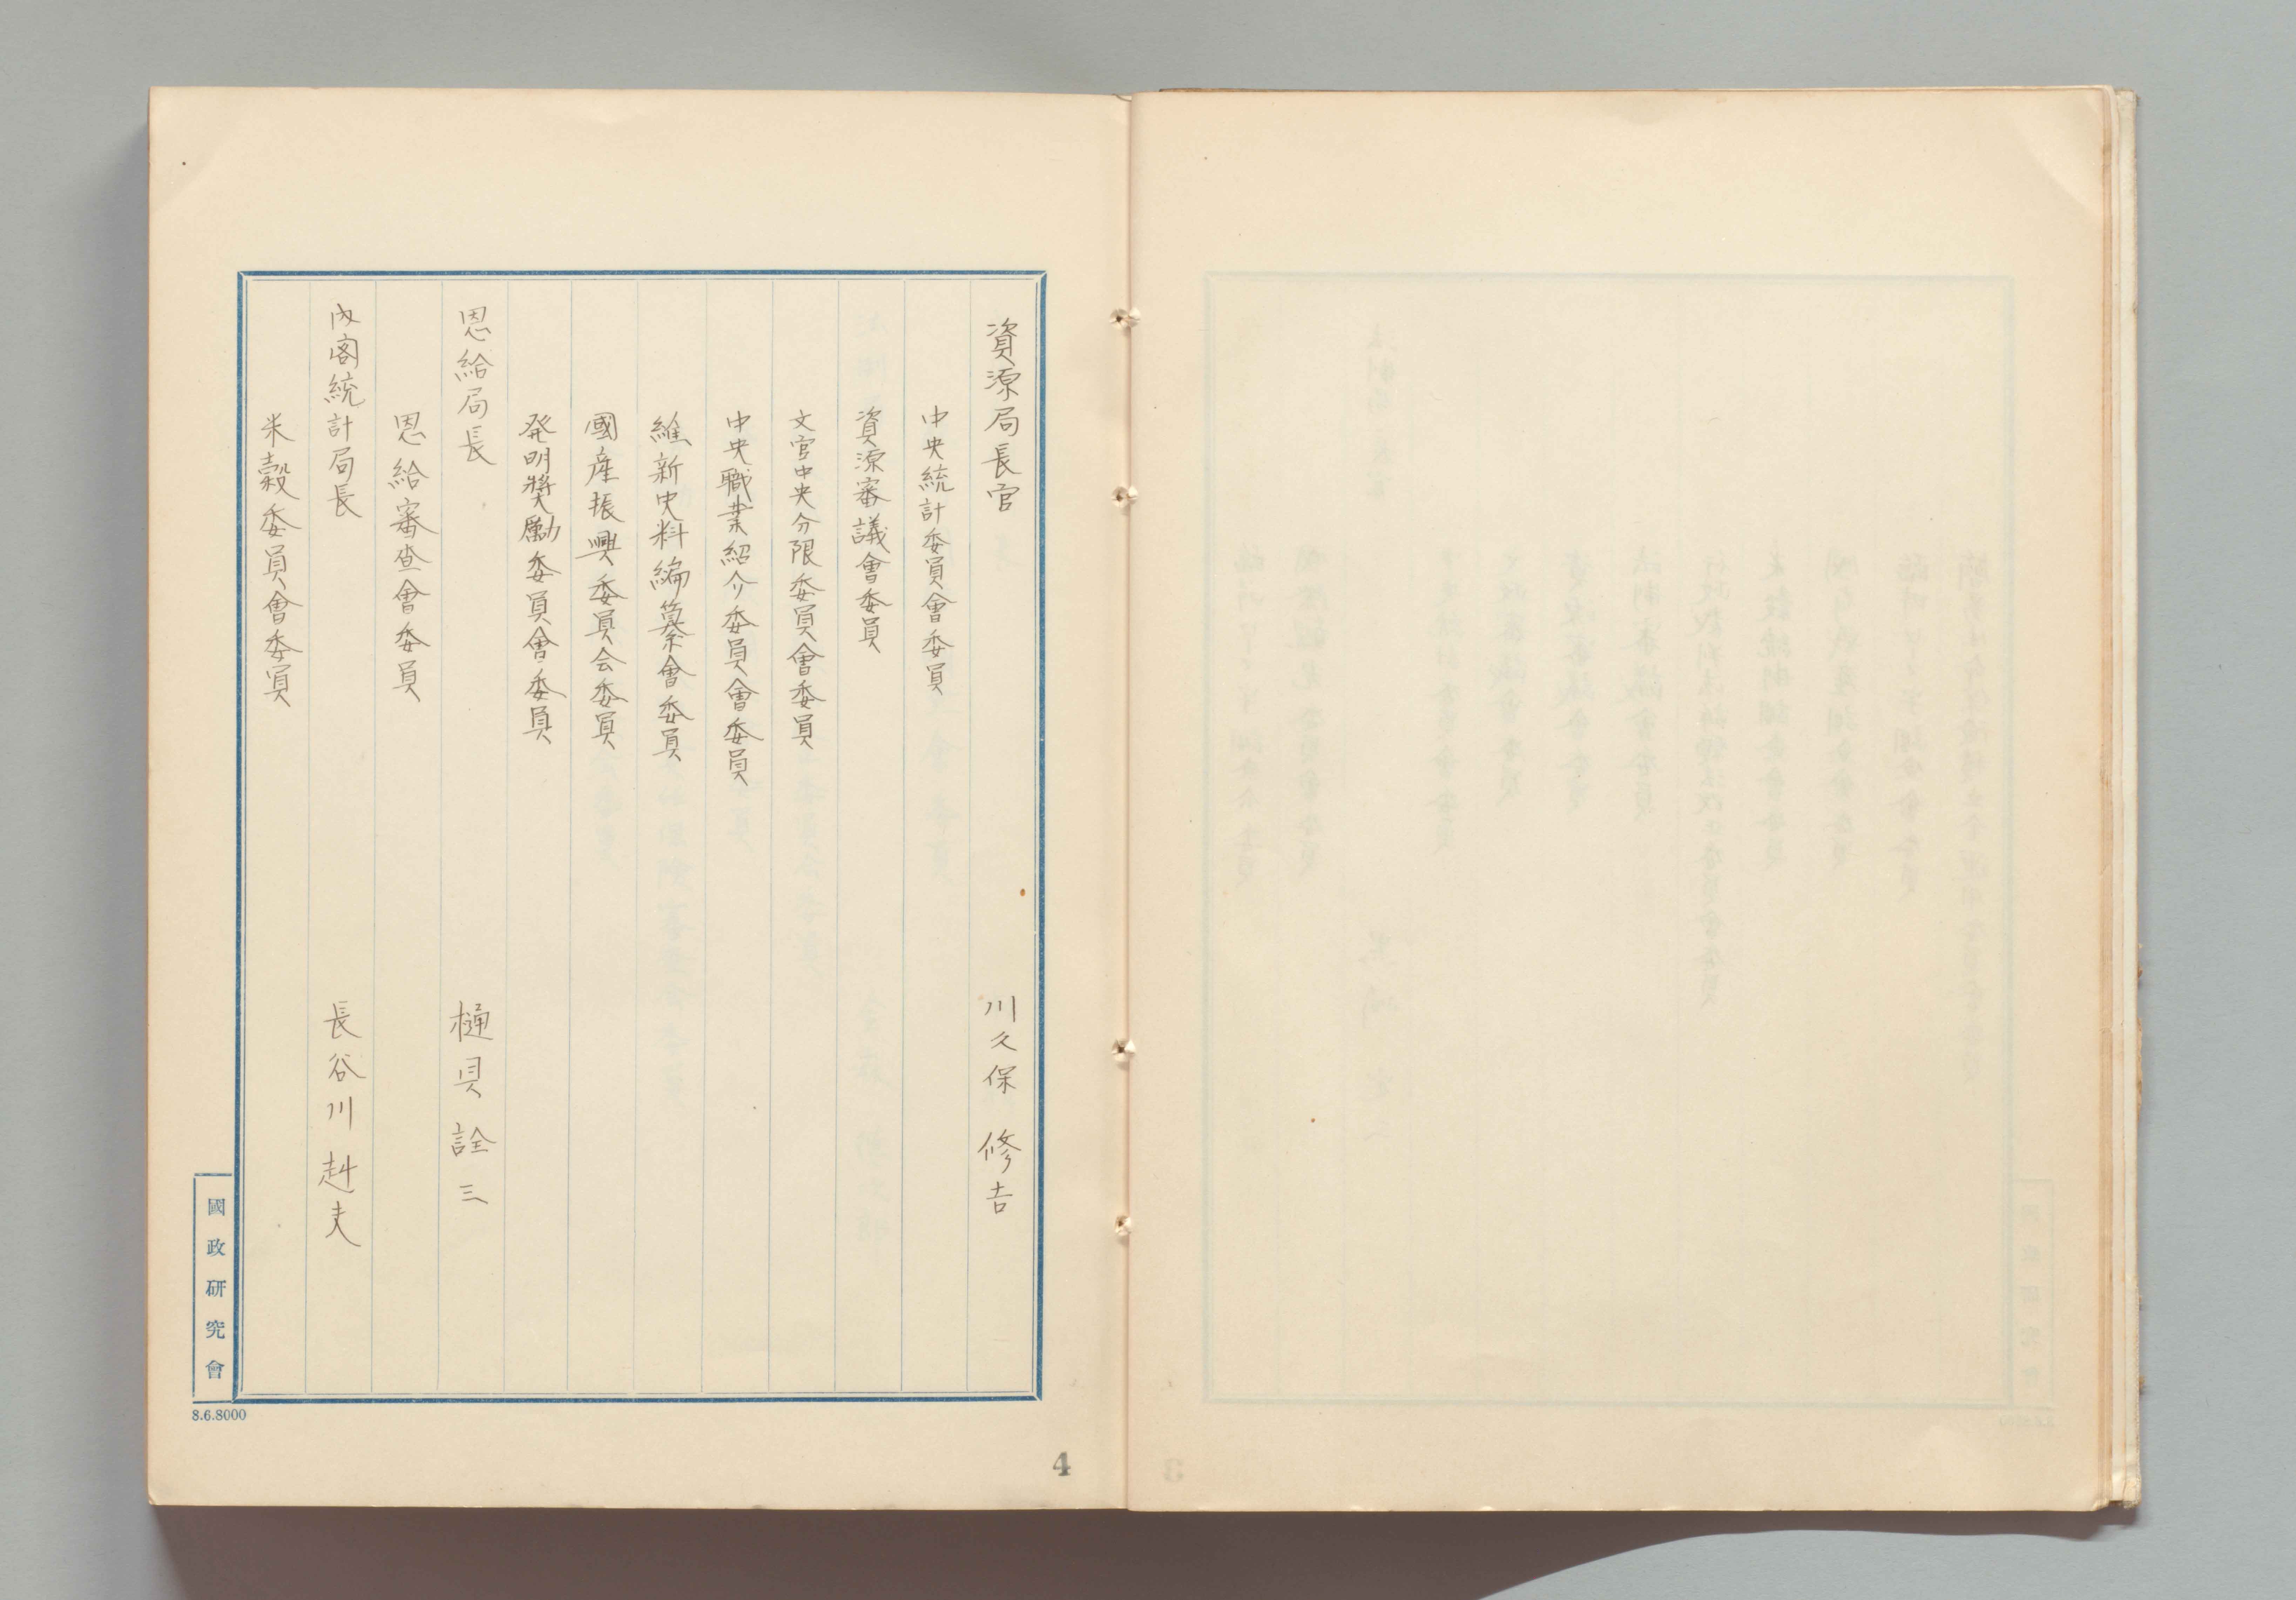 資源局長官　川久保修吉
中央統計委員會委員
資源審議會委員
文官中央分限委員會委員
中央職業紹介委員會委員
維新史料編纂會委員
國産振興委員会委員
発明奬勵委員會委員
恩給局長　樋貝詮三
恩給審査會委員
内閣統計局長　長谷川赳夫
米穀委員會委員
國政研究會
8.6.8000
4